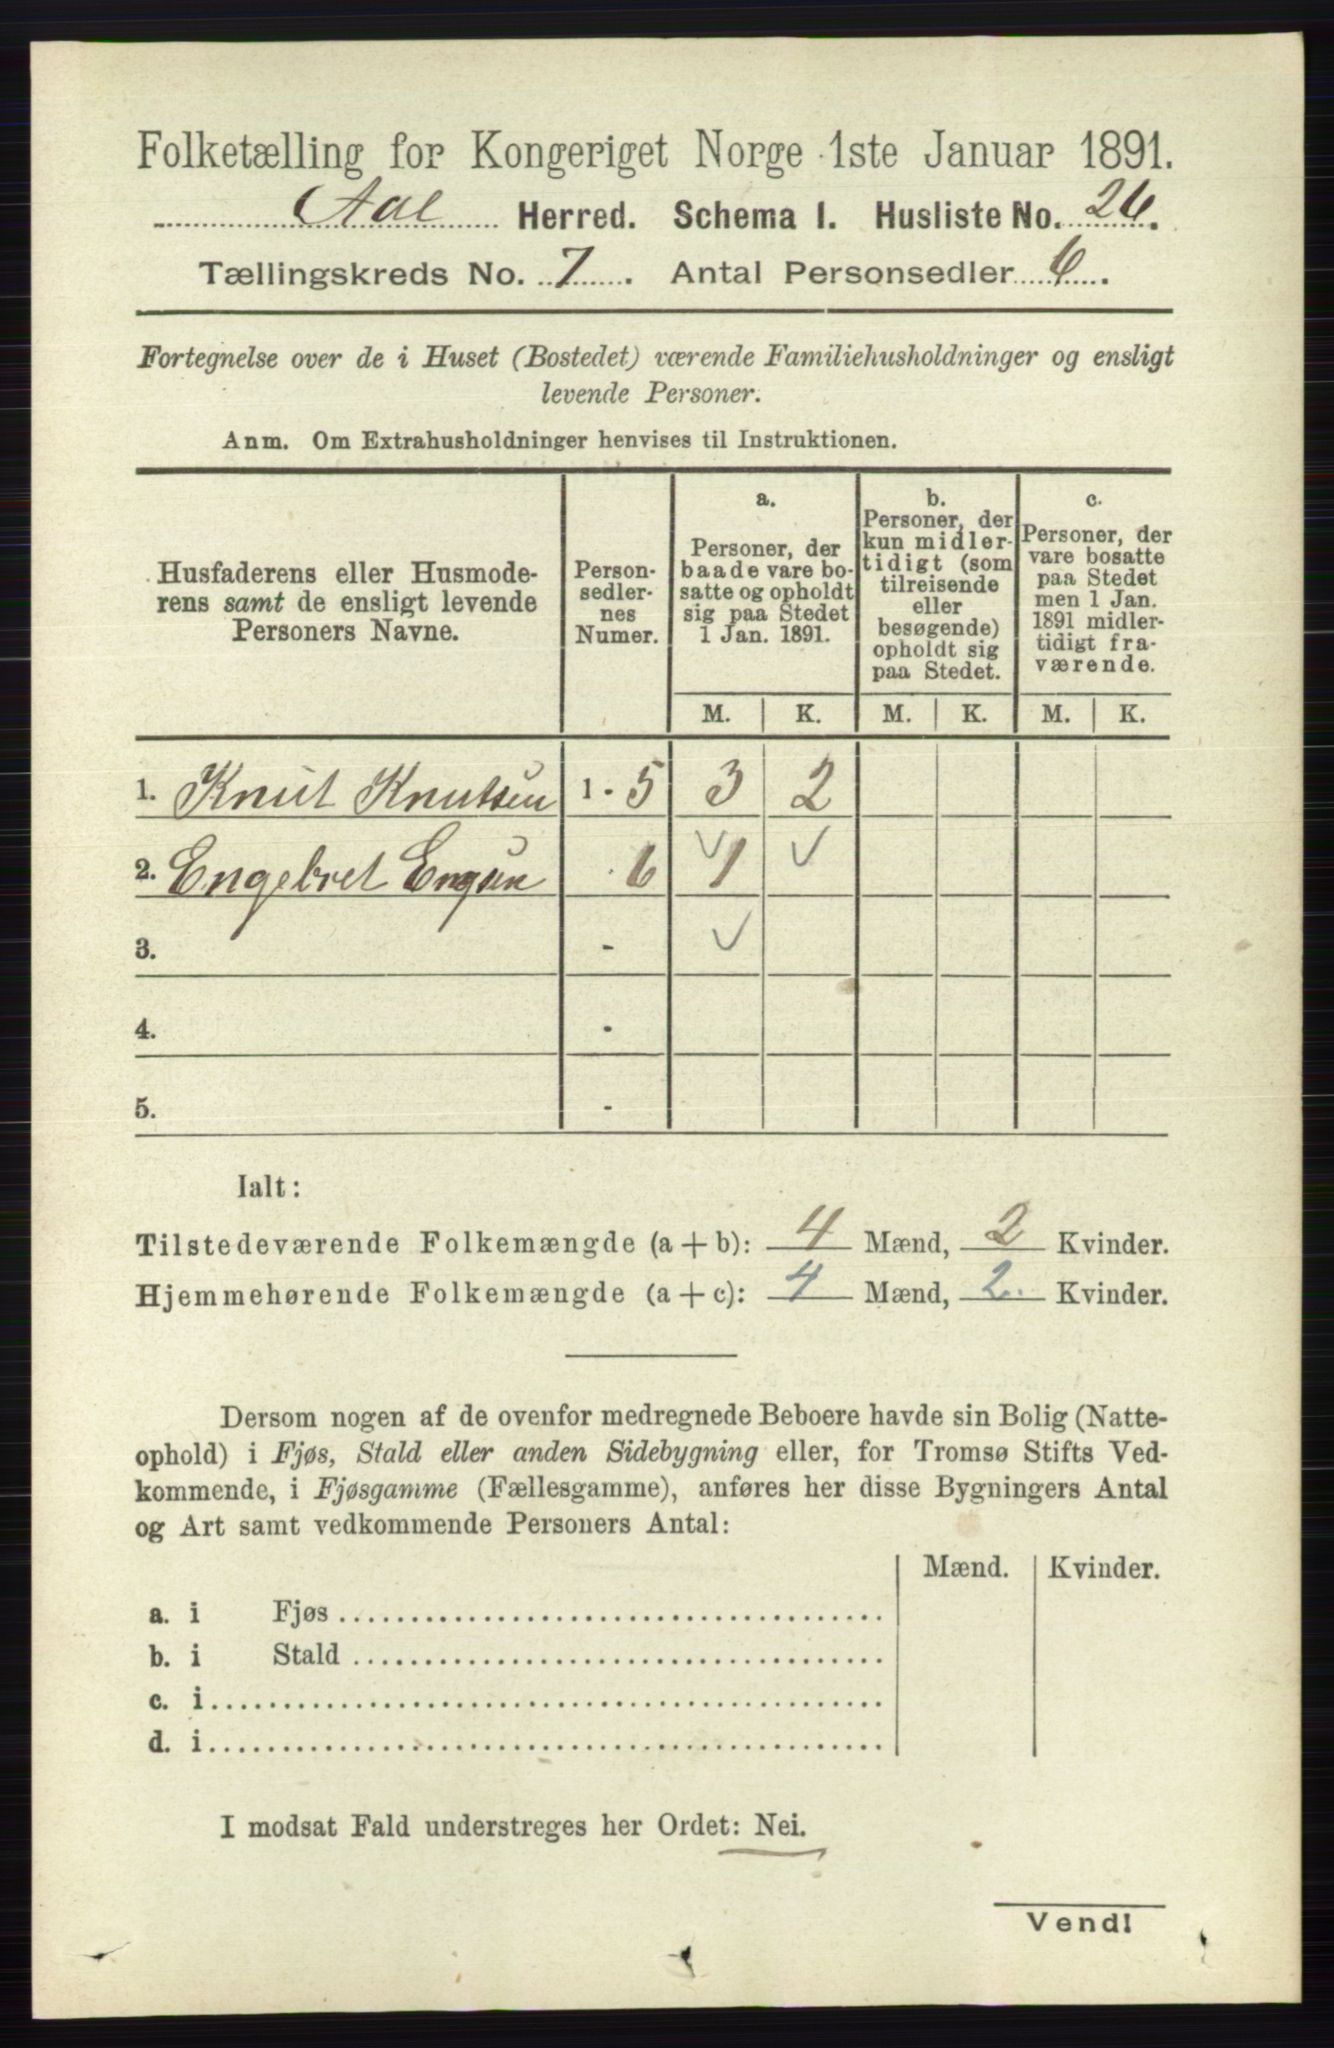 Folketælling for Kongeriget Norge 1ste Januar 1891.
Aal Herred. Schema 1. Husliste No. 26.
Tællingskreds No. 7. Antal Personsedler 6.
Fortegnelse over de i Huset (Bostedet) værende Familiehusholdninger og ensligt
levende Personer.
Anm. Om Extrahusholdninger henvises til Instruktionen.
Husfaderens eller Husmode-
rens samt de ensligt levende
Personers Navne.
Person-
sedler-
nes
Numer.
a.
Personer, der
baade vare bo-
satte og opholdt
sig paa Stedet
1 Jan. 1891.
b.
Personer, der
kun midler-
tidigt (som
tilreisende
eller
besøgende)
opholdt sig
paa Stedet.
c.
Personer, der
vare bosatte
paa Stedet
men 1 Jan.
1891 midler-
tidigt fra-
værende.
M. K. M. K. M. K.
1. Knut Knutsen 1 - 5 3 2
2. Engebret 6 ✓ 1 ✓
3. - ✓
4. -
5. -
Ialt:
Tilstedeværende Folkemængde (a + b): 4 Mænd, 2 Kvinder.
Hjemmehørende Folkemængde (a + c): 4 Mænd, 2 Kvinder.
Dersom nogen af de ovenfor medregnede Beboere havde sin Bolig (Natte-
ophold) i Fjøs, Stald eller anden Sidebygning eller, for Tromsø Stifts Ved-
kommende, i Fjøsgamme (Fællesgamme), anføres her disse Bygningers Antal
og Art samt vedkommende Personers Antal:
Mænd. Kvinder.
a. i Fjøs
b. i Stald
c. i
d. i
I modsat Fald understreges her Ordet: Nei.
Vend!